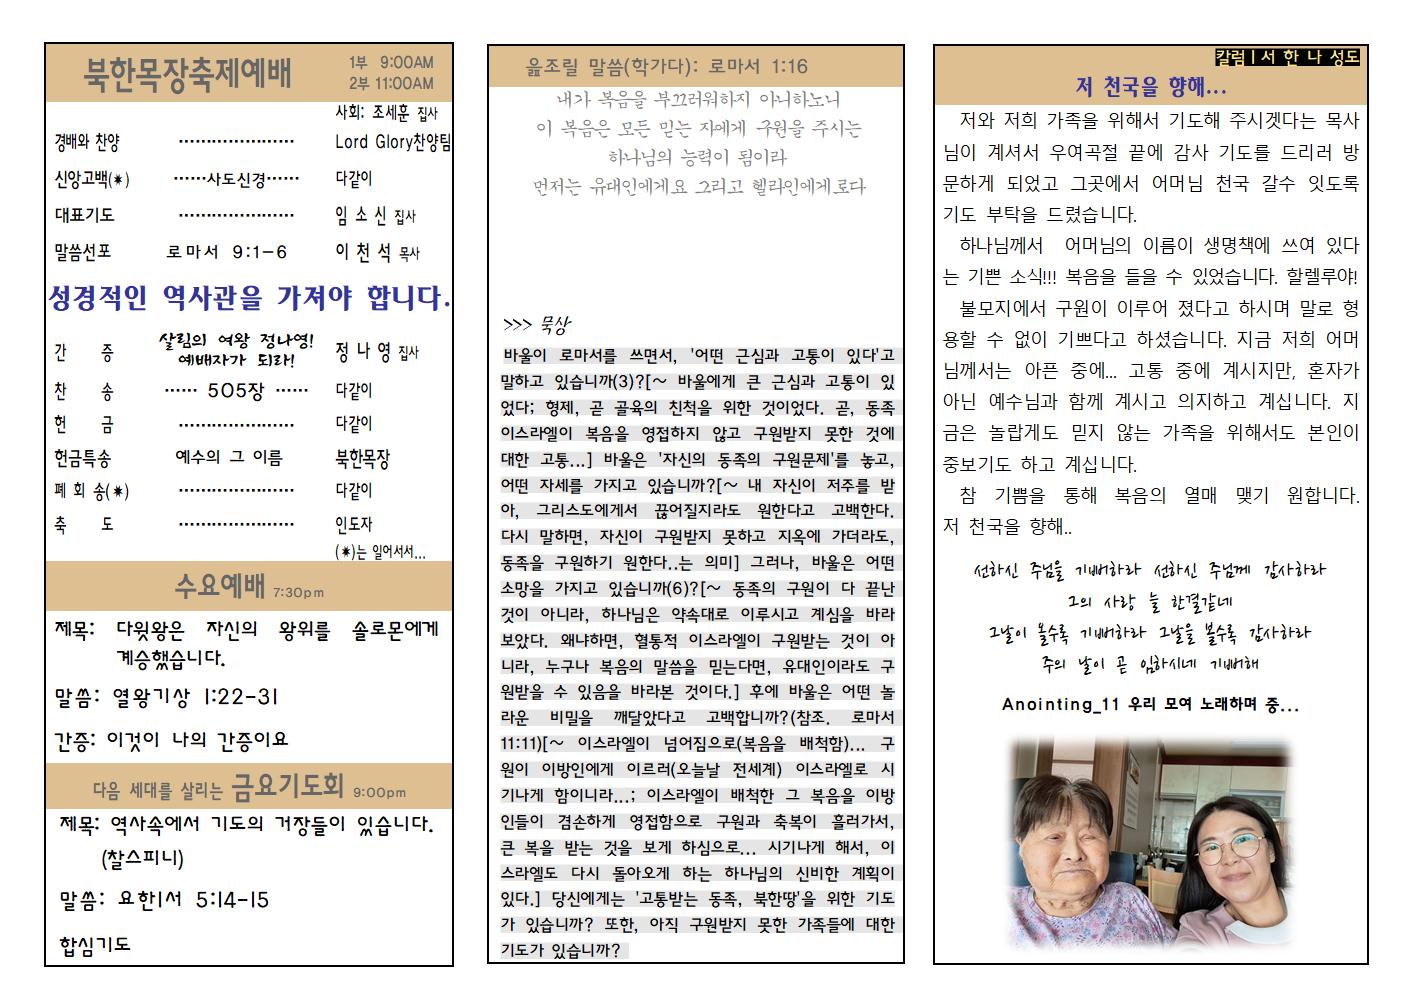 북한목장축제예배
1부 9:00AM
2부 11:00AM
사회: 조세훈 집사
경배와 찬양 ······················ Lord Glory찬양팀
신앙고백(✷) ······사도신경······ 다같이
대표기도 ······················ 임 소 신 집사
말씀선포 로마서 9:1-6 이 천 석 목사
성경적인 역사관을 가져야 합니다.
간 증 살림의 여왕 정나영! 정 나 영 집사
예배자가 되라!
찬 송 ······ 505장 ······ 다같이
헌 금 ······················ 다같이
헌금특송 예수의 그 이름 북한목장
폐 회 송(✷) ······················ 다같이
축 도 ······················ 인도자
(✷)는 일어서서...
수요예배 7:30pm
제목: 다윗왕은 자신의 왕위를 솔로몬에게
계승했습니다.
말씀: 열왕기상 1:22-31
간증: 이것이 나의 간증이요
다음 세대를 살리는 금요기도회 9:00pm
제목: 역사속에서 기도의 거장들이 있습니다.
(찰스피니)
말씀: 요한1서 5:14-15
합심기도
읊조릴 말씀(학가다): 로마서 1:16
내가 복음을 부끄러워하지 아니하노니
이 복음은 모든 믿는 자에게 구원을 주시는
하나님의 능력이 됨이라
먼저는 유대인에게요 그리고 헬라인에게로다
>>> 묵상
바울이 로마서를 쓰면서, '어떤 근심과 고통이 있다'고
말하고 있습니까(3)?[～ 바울에게 큰 근심과 고통이 있
었다; 형제, 곧 골육의 친척을 위한 것이었다. 곧, 동족
이스라엘이 복음을 영접하지 않고 구원받지 못한 것에
대한 고통...] 바울은 '자신의 동족의 구원문제'를 놓고,
어떤 자세를 가지고 있습니까?[～ 내 자신이 저주를 받
아, 그리스도에게서 끊어질지라도 원한다고 고백한다.
다시 말하면, 자신이 구원받지 못하고 지옥에 가더라도,
동족을 구원하기 원한다..는 의미] 그러나, 바울은 어떤
소망을 가지고 있습니까(6)?[～ 동족의 구원이 다 끝난
것이 아니라, 하나님은 약속대로 이루시고 계심을 바라
보았다. 왜냐하면, 혈통적 이스라엘이 구원받는 것이 아
니라, 누구나 복음의 말씀을 믿는다면, 유대인이라도 구
원받을 수 있음을 바라본 것이다.] 후에 바울은 어떤 놀
라운 비밀을 깨달았다고 고백합니까?(참조. 로마서
11:11)[～ 이스라엘이 넘어짐으로(복음을 배척함)... 구
원이 이방인에게 이르러(오늘날 전세계) 이스라엘로 시
기나게 함이니라...; 이스라엘이 배척한 그 복음을 이방
인들이 겸손하게 영접함으로 구원과 축복이 흘러가서,
큰 복을 받는 것을 보게 하심으로... 시기나게 해서, 이
스라엘도 다시 돌아오게 하는 하나님의 신비한 계획이
있다.] 당신에게는 '고통받는 동족, 북한땅'을 위한 기도
가 있습니까? 또한, 아직 구원받지 못한 가족들에 대한
기도가 있습니까?
칼럼ㅣ서 한 나 성도
저 천국을 향해...
저와 저희 가족을 위해서 기도해 주시겟다는 목사
님이 계셔서 우여곡절 끝에 감사 기도를 드리러 방
문하게 되었고 그곳에서 어머님 천국 갈수 잇도록
기도 부탁을 드렸습니다.
하나님께서 어머님의 이름이 생명책에 쓰여 있다
는 기쁜 소식!!! 복음을 들을 수 있었습니다. 할렐루야!
불모지에서 구원이 이루어 졌다고 하시며 말로 형
용할 수 없이 기쁘다고 하셨습니다. 지금 저희 어머
님께서는 아픈 중에... 고통 중에 계시지만, 혼자가
아닌 예수님과 함께 계시고 의지하고 계십니다. 지
금은 놀랍게도 믿지 않는 가족을 위해서도 본인이
중보기도 하고 계십니다.
참 기쁨을 통해 복음의 열매 맺기 원합니다.
저 천국을 향해..
선하신 주님을 기뻐하라 선하신 주님께 감사하라
그의 사랑 늘 한결같네
그날이 볼수록 기뻐하라 그날을 볼수록 감사하라
주의 날이 곧 임하시네 기뻐해
Anointing_11 우리 모여 노래하며 중...